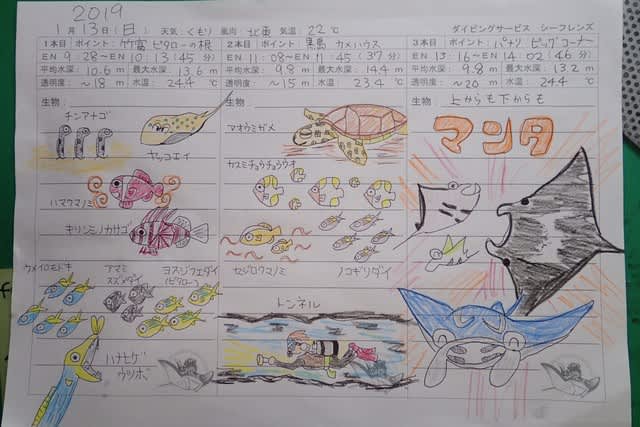 2019
1月13日(日) 天気:くもり 風向:北東 気温:22℃ ダイビングサービス シーフレンズ
1本目 ポイント:竹富 ピタローの根
EN 9:28~EN 10:13(45分)
平均水深:10.6m 最大水深:13.6m
透明度:~18m 水温:24.4℃
生物
チンアナゴ
ヤッコエイ
ハマクマノミ
キリンミノカサゴ
ウメイロモドキ
アマミスズメダイ
ヨスジフエダイ
(ピタロー)
ハナヒゲ
ウツボ
2本目 ポイント:黒島 カメハウス
EN 11:08~EN 11:45(37分)
平均水深:9.8m 最大水深:14.4m
透明度:~15m 水温:23.4℃
生物
アオウミガメ
カスミチョウチョウウオ
セジロクマノミ
ノコギリダイ
トンネル
3本目 ポイント:パナリ ビッグコーナー
EN 13:16~EN 14:02(46分)
平均水深:9.8m 最大水深:13.2m
透明度:~20m 水温:24.4℃
生物 上からも下からも
マンタ